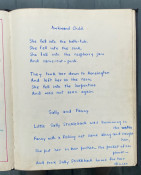 Awkward Child
She fell into the bath-tub,
She fell into the sink,
She fell into the raspberry jam
And came out - pink.
They took her down to Kensington
And left her on the
She fell into the Serpentine
And was not seen again.
Sally and Penny
Little Sally Stickleback was swimming in the water
Penny with a fishing net came along and caught
She put her in her
And took Sally Stickleback home